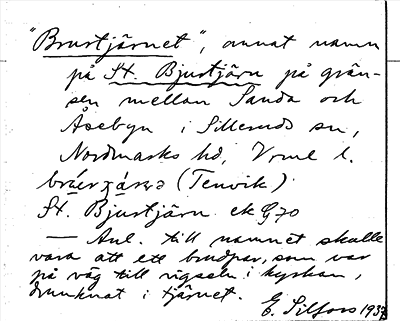 "Brustjärnet", annat namn
på St. Bjustjärn på grän-
sen mellan Sanda och
Åsebyn i Silleruds sn,
Nordmarks hd, Vrml l.
(Tenvik)
St. Bjustjärn ek G70
— Anl. till namnet skulle
vara att ett brudpar, som var
på väg till vigseln i kyrkan,
drunknat i tjärnet.
E. Silfors 1937